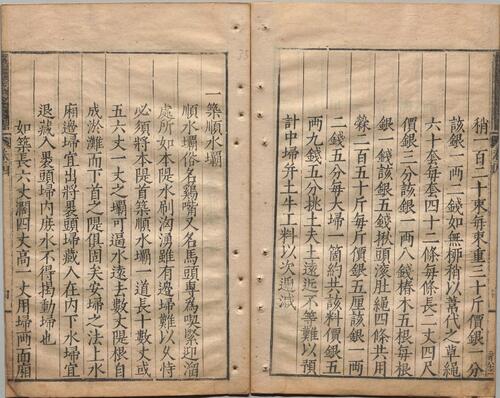 稍一百二十束每束重三十斤價銀一分
該銀一兩二錢如無柳稍以葦代之草繩
六十套每套四十二條每條長二丈四尺
價銀三分該銀一兩八錢樁木五根每根
銀一錢該銀五錢揪頭滾肚繩四條共用
檾二百五十斤每斤價銀五厘該銀一兩
二錢五分每大埽一箇約共該料價銀五
兩九錢五分挑土夫土遠近不等難以預
計中埽并土牛工料以次遞減
一築順水壩
順水壩俗名雞嘴又名馬頭專為喫緊迎溜
處所如本隄水刷洶湧雖有邊埽難以久恃
必須將本隄首築順水壩一道長十數丈或
五六丈一丈之壩可逼水遠去數丈隄根自
成淤灘而下首之隄俱固矣安埽之法上水
廂邊埽宜出將裹頭埽藏入在內下水埽宜
退藏入裹頭埽內庶水不得揭動埽也
如築長六丈濶四丈高一丈用埽両面廂